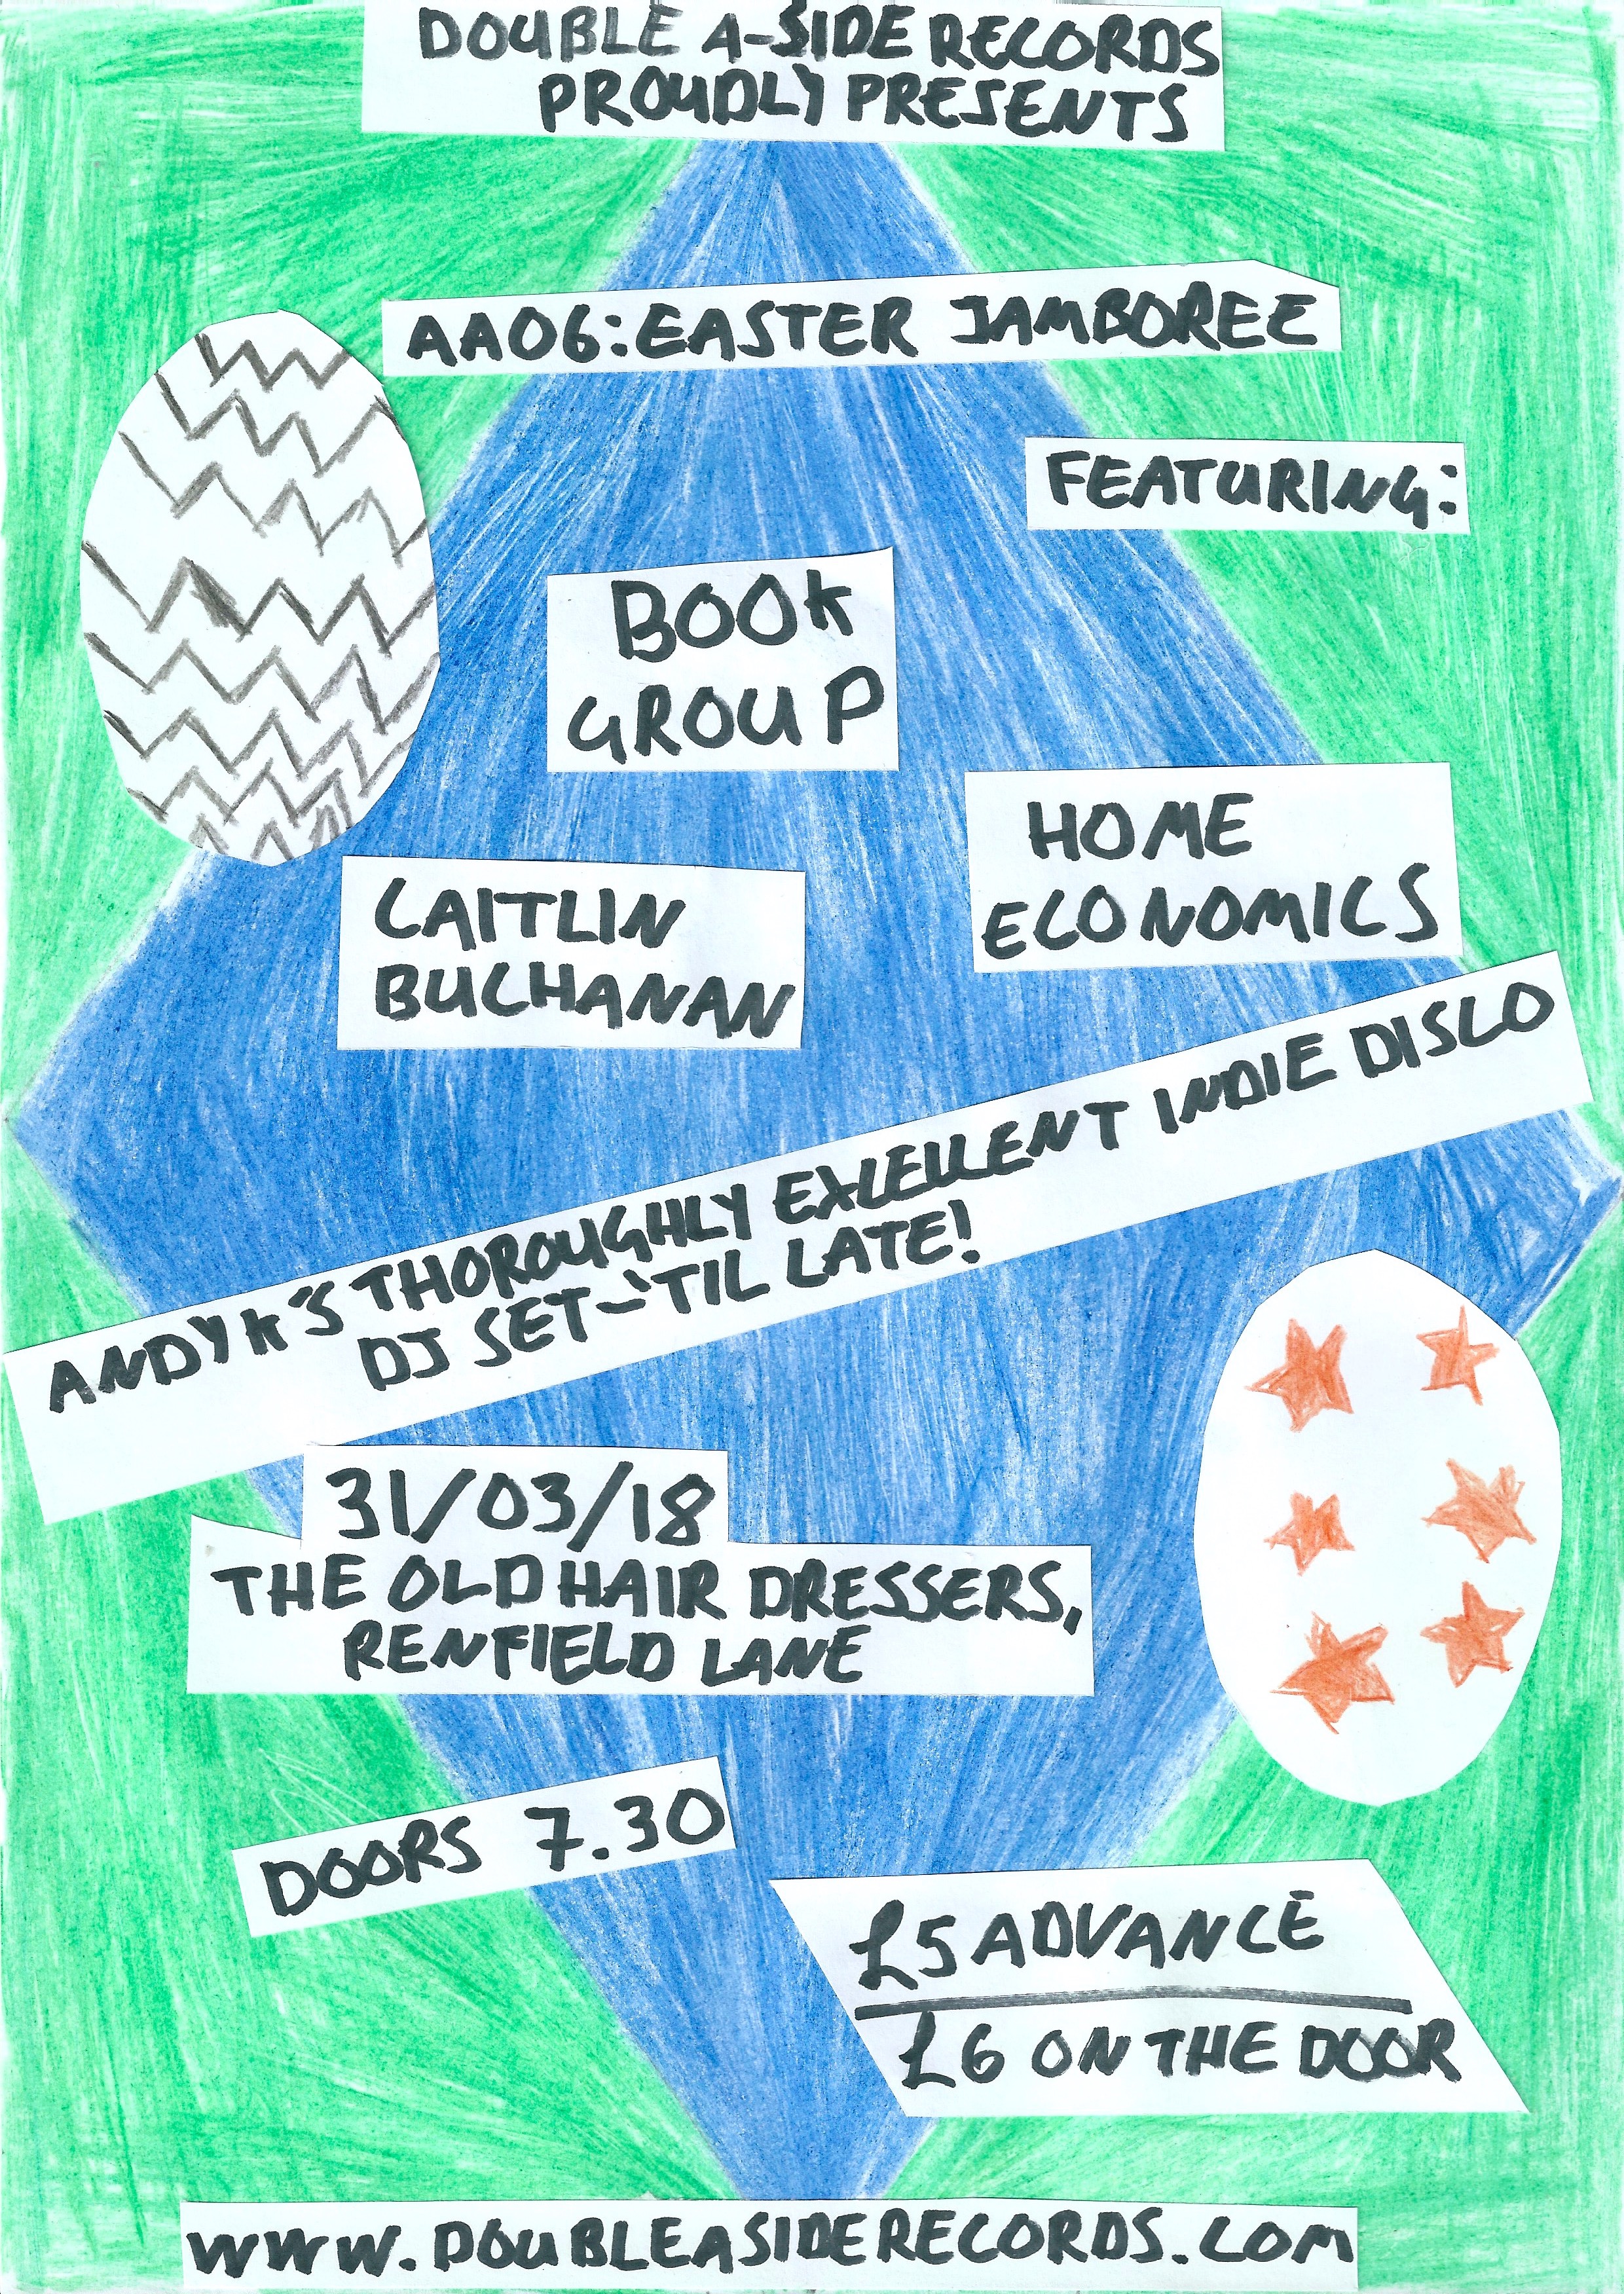 DOUBLE A-SIDE RECORDS
PROUDLY PRESENTS
AA06: EASTER JAMBOREE
FEATURING:
BOOK
GROUP
HOME
ECONOMICS
CAITLIN
BUCHANAN
ANDY K'S THOROUGHLY EXCELLENT INDIE DISCO
DJ SET-'TIL LATE!
31/03/18
THE OLD HAIR DRESSERS,
RENFIELD LANE
DOORS 7.30
£5 ADVANCE
£6 ON THE DOOR
WWW.DOUBLEASIDERECORDS.COM